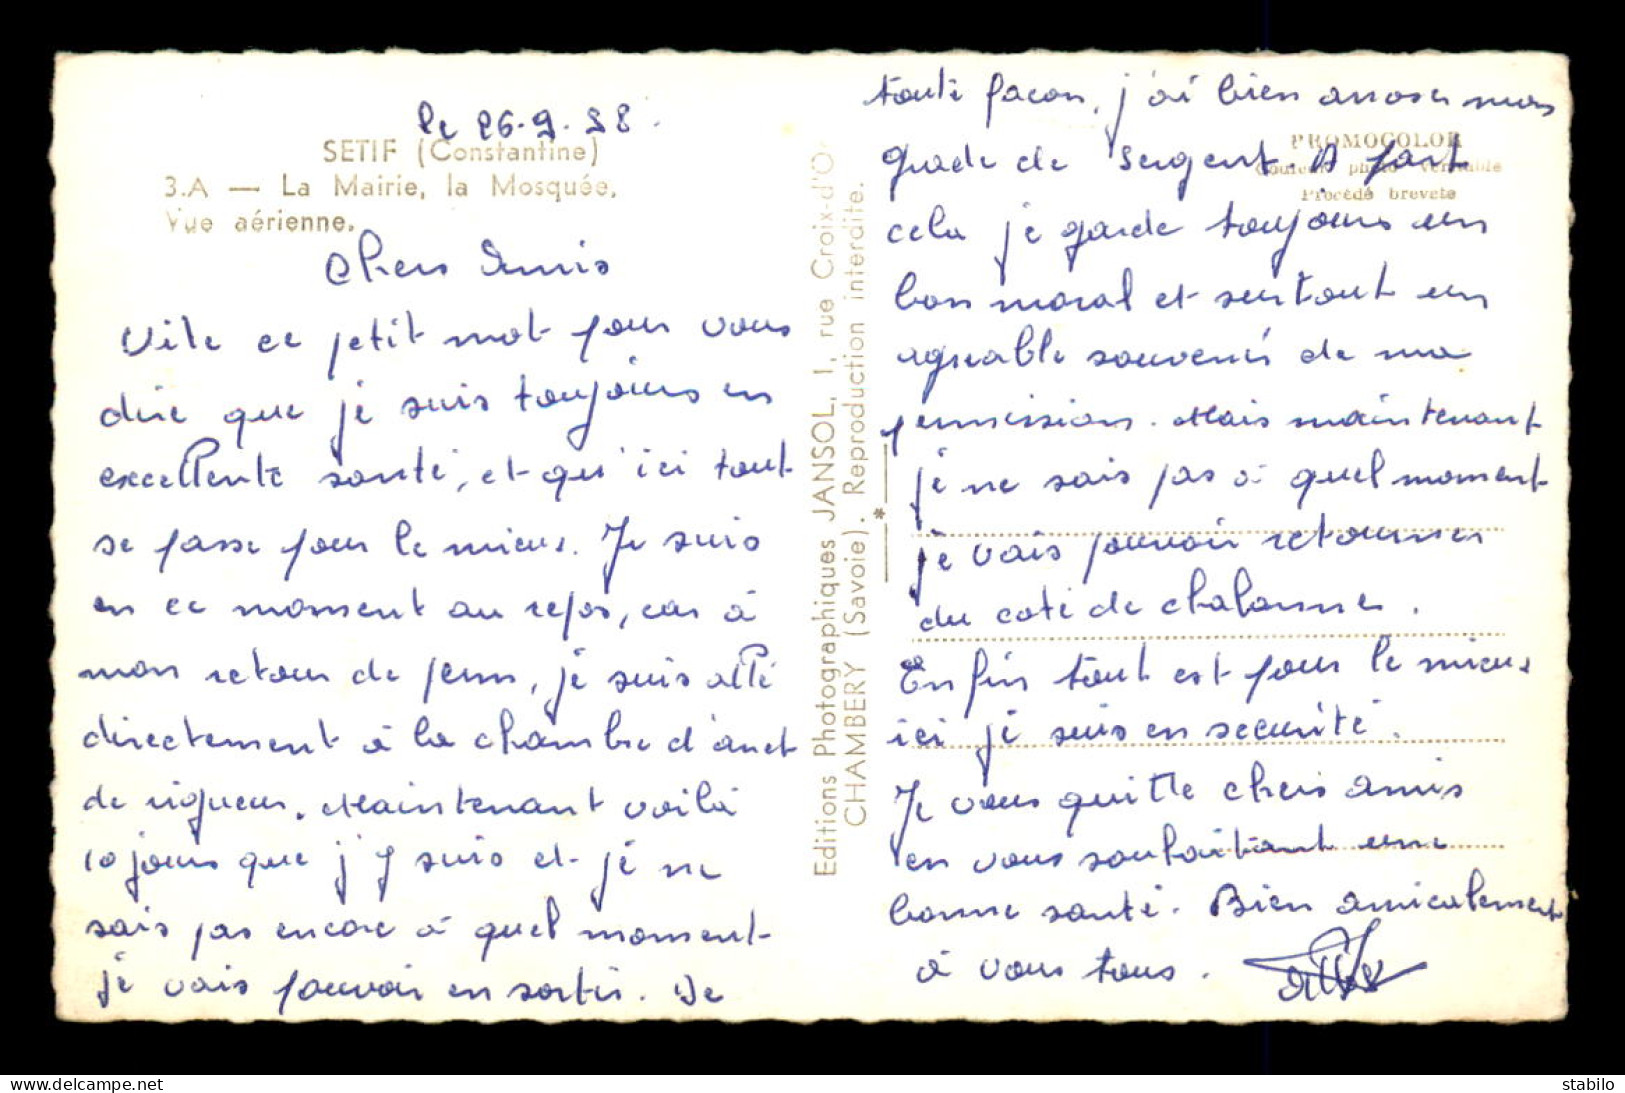 le 26-9-58.
SETIF (Constantine)
3.A — La Mairie, la Mosquée.
Vue aérienne.
Chers Amis
Vite ce petit mot pour vous
dire que je suis toujours en
excellente santé, et qu'ici tout
se passe pour le mieux. Je suis
en ce moment au repos, car à
mon retour de perm, je suis allé
directement à la chambre d'arret
de rigueur. Maintenant voilà
10 jours que j'y suis et je ne
sais pas encore à quel moment
je vais pouvoir en sortir. De
Editions Photographiques JANSOL, 1, rue Croix-d'O
CHAMBERY (Savoie). Reproduction interdite.
PROMOCOLOR
Couleur photo véritable
Procédé breveté
toute facon, j'ai bien arroser mon
grade de sergent. A part
cela je garde toujours un
bon moral et surtout un
agreable souvenir de ma
permission. Mais maintenant
je ne sais pas à quel moment
je vais pouvoir retourner
du coté de chalonnes.
Enfin tout est pour le mieux
ici je suis en securité.
Je vous quitte chers amis
en vous souhaitant une
bonne santé. Bien amicalement
à vous tous.
www.delcampe.net
stabilo